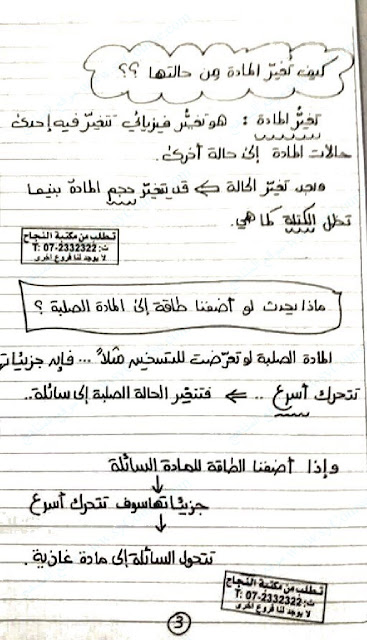 كيف تُغيّر المادة من حالتها ؟؟
تغيُّر المادة : هو تغيُّر فيزيائي تتغيّر فيه إحدى
حالات المادة إلى حالة أخرى.
وبعد تغيّر الحالة ⇐ قد يتغيّر حجم المادة بينما
تظل الكتلة كما هي.
تطلب من مكتبة النجاح
ت: 07-2332322 :T
لا يوجد لنا فروع اخرى
ماذا يحدث لو أضفنا طاقة إلى المادة الصلبة ؟
المادة الصلبة لو تعرّضت للتسخين مثلاً ... فإن جزيئاتها
تتحرك أسرع .. ⇐ فتتغير الحالة الصلبة إلى سائلة..
وإذا أضفنا الطاقة للمادة السائلة
↓
جزيئاتها سوف تتحرك أسرع
↓
تتحول السائلة إلى مادة غازية .
تطلب من مكتبة النجاح
ت: 07-2332322 :T
لا يوجد لنا فروع اخرى
3